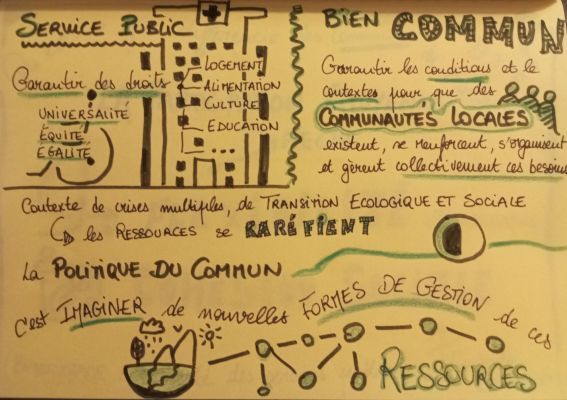 SERVICE PUBLIC
Garantir des droits
UNIVERSALITÉ
ÉQUITÉ
EGALITÉ
LOGEMENT
ALIMENTATION
CULTURE
EDUCATION
BIEN COMMUN
Garantir les conditions et le
contextes pour que des
COMMUNAUTÉS LOCALES
existent, se renforcent, s'organisent
et gèrent collectivement ces besoins
Contexte de crises multiples, de TRANSITION ECOLOGIQUE ET SOCIALE
les RESSOURCES se RARÉFIENT
La POLITIQUE DU COMMUN
c'est IMAGINER de nouvelles FORMES DE GESTION de ces
RESSOURCES